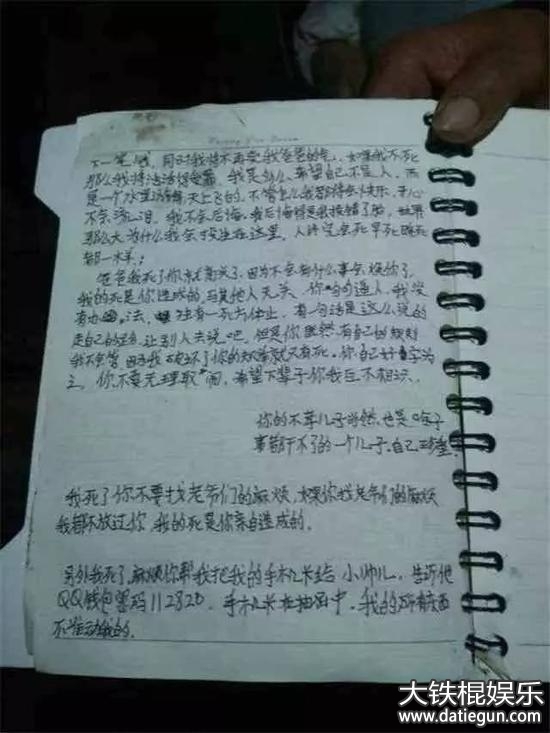 下一笔钱, 同时我将不再受我爸爸的气, 如果我不死
那么我将活活得受罪 我是多么希望自己不是人, 而
是一个水里游 天上飞的, 不管怎么我都得会快乐, 开心
不会流泪, 我不会后悔, 我后悔得是我投错了胎, 世界
那么大为什么我会投生在这里, 人终究会死早死晚死
都一样;
爸爸我死了你就高兴了, 因为不会有什么事会烦你了,
我的死是你造成的, 与其他人无关, 你句句逼人, 我没
有办法, 独有一死方休止, 有一句话是这么说的
走自己的路, 让别人去说吧, 但是你既然有自己的规则
我不会管, 因为我破坏了你的规 就只有死, 你自己好自为
之, 你不要无理取闹, 希望下辈子你我互不相识,
你的不孝儿子 当然, 也是啥子
事都干不了的一个儿子, 自己珍重,
我死了你不要找老爷们的麻烦, 如果你找老爷们的麻烦
我都不放过你, 我的死是你亲自造成的,
另外我死了, 麻烦你帮我把我的手机卡给 小帅儿, 告诉他
QQ钱包密码112820, 手机卡在抽 中, 我的所有东西
不准动我的,
大铁棍娱乐
www.datiegun.com